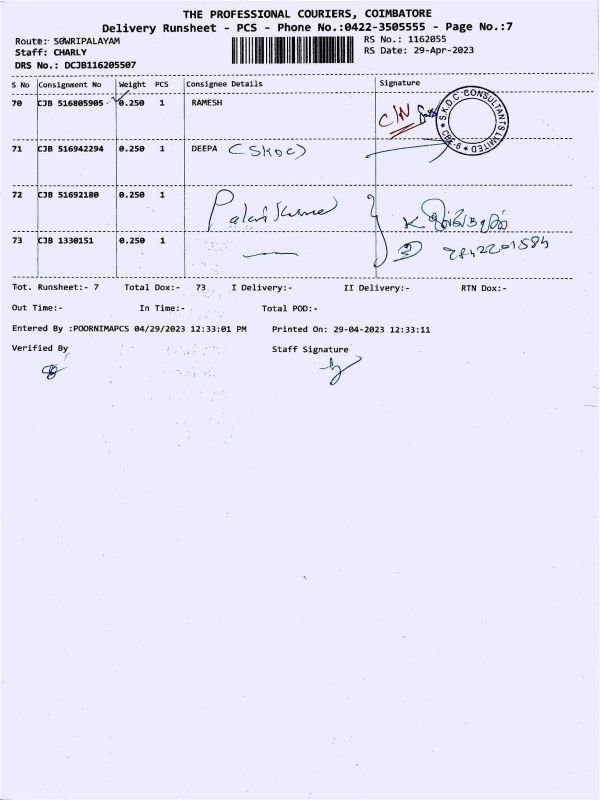 THE PROFESSIONAL COURIERS, COIMBATORE
Delivery Runsheet - PCS - Phone No.:0422-3505555 - Page No.:7
Route: SOWRIPALAYAM
RS No.: 1162055
Staff: CHARLY
RS Date: 29-Apr-2023
DRS No.: DCJB116205507
S No Consignment No Weight PCS Consignee Details Signature
70 CJB 516805905 0.250 1 RAMESH
C/N
S.K.D.C. CONSULTANTS LIMITED * CBE-6 *
71 CJB 516942294 0.250 1 DEEPA (SKDC)
72 CJB 51692180 0.250 1
73 CJB 1330151 0.250 1
Tot. Runsheet:- 7 Total Dox:- 73 I Delivery:- II Delivery:- RTN Dox:-
Out Time:- In Time:- Total POD:-
Entered By :POORNIMAPCS 04/29/2023 12:33:01 PM Printed On: 29-04-2023 12:33:11
Verified By Staff Signature